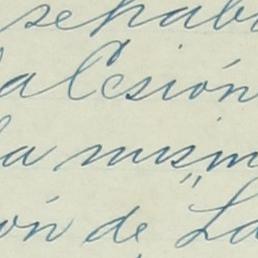 se hab
la Cesión
la mism
ón de "La